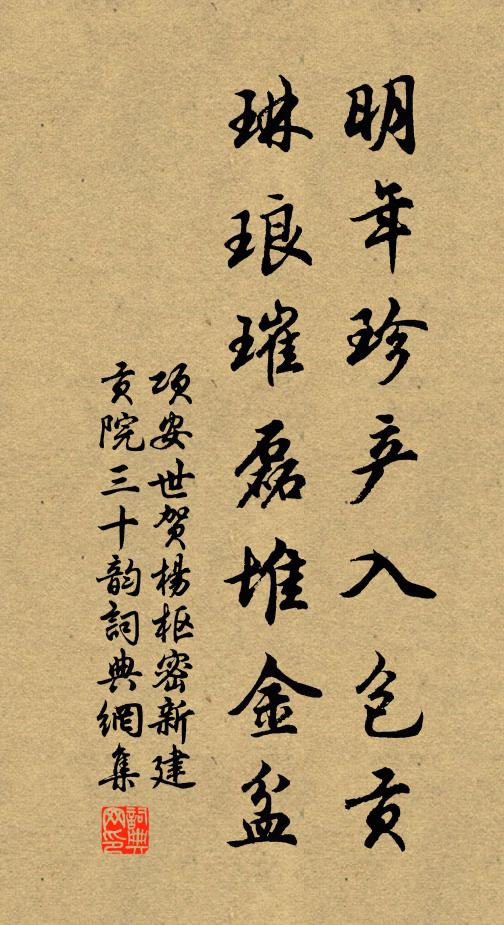 明年珍产入包贡
琳琅璀磊堆金盆
项安世贺杨枢密新建
贡院三十韵詞典網集
詞典
网印